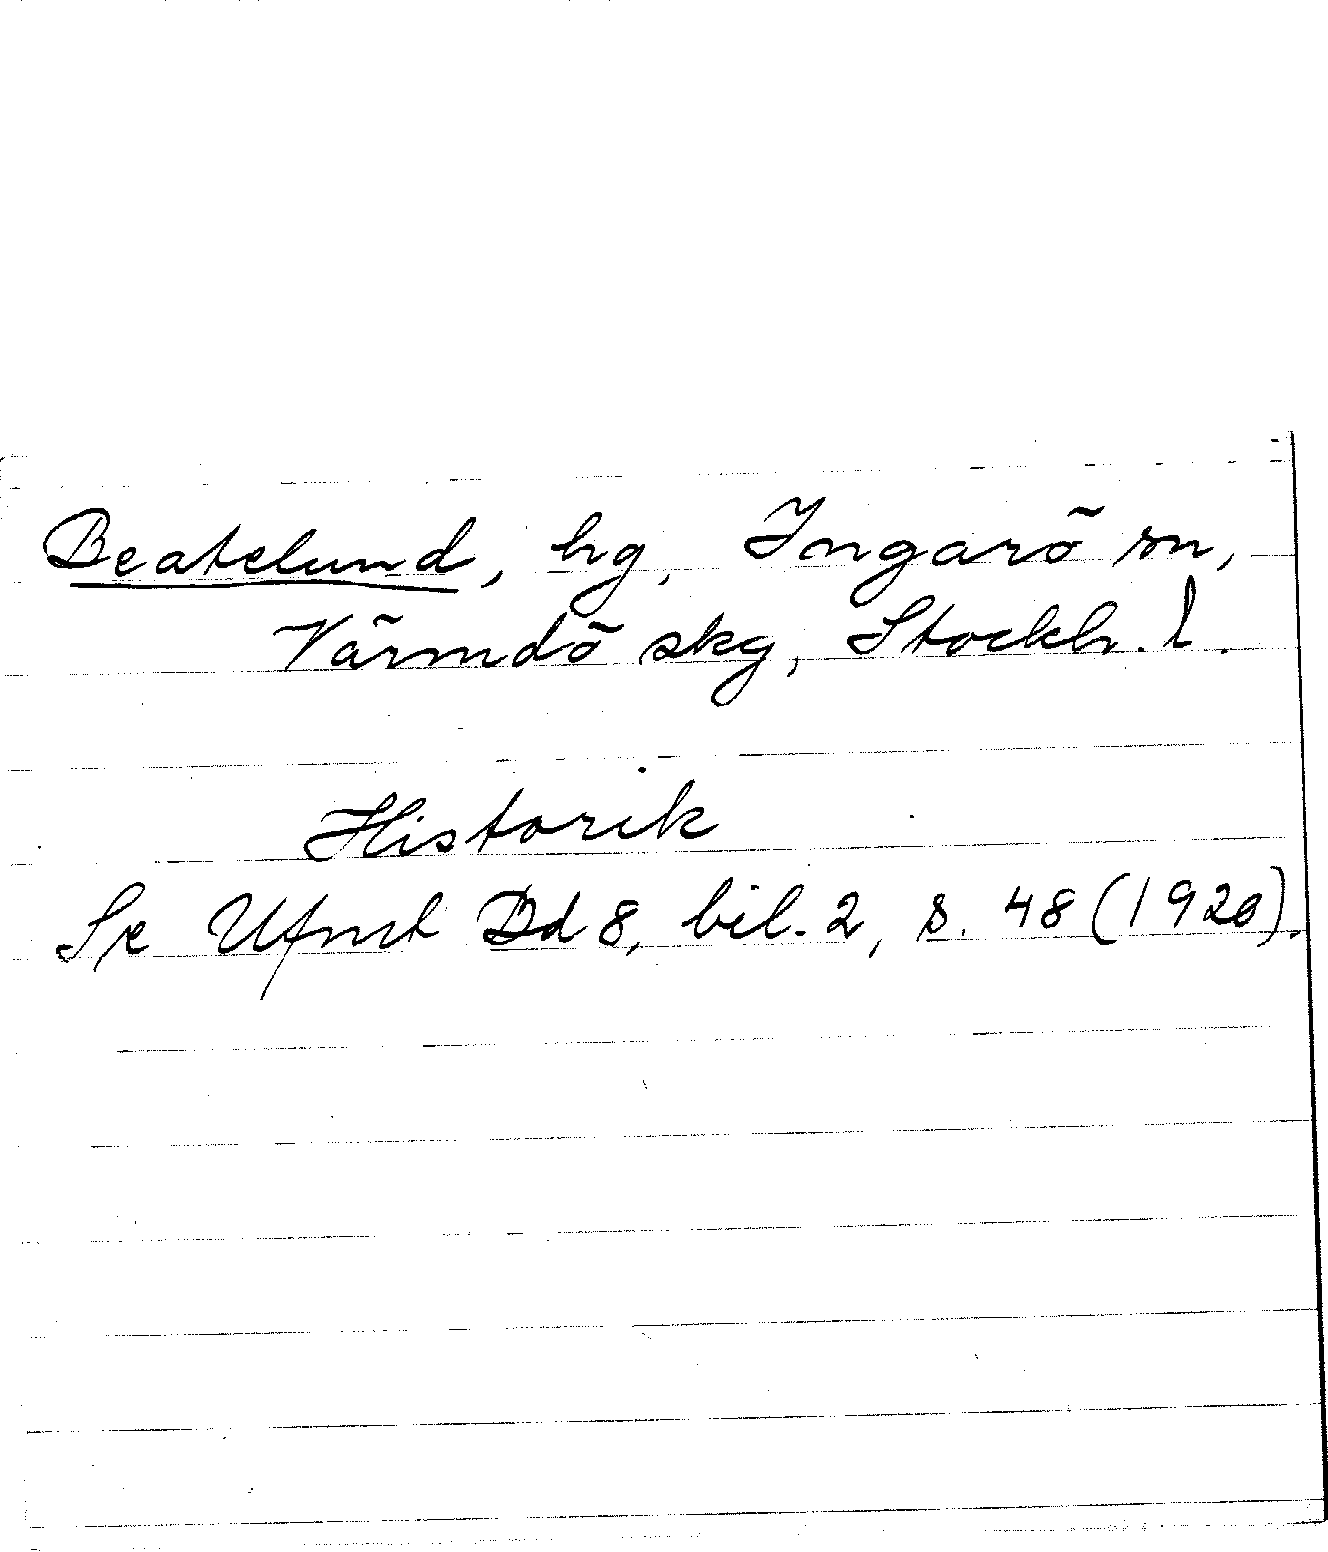 Beatelund, hg, Ingarö sn,
Värmdö skg, Stockh. l.
Historik
Se Ufmt Dd 8, bil. 2, s. 48 (1920).